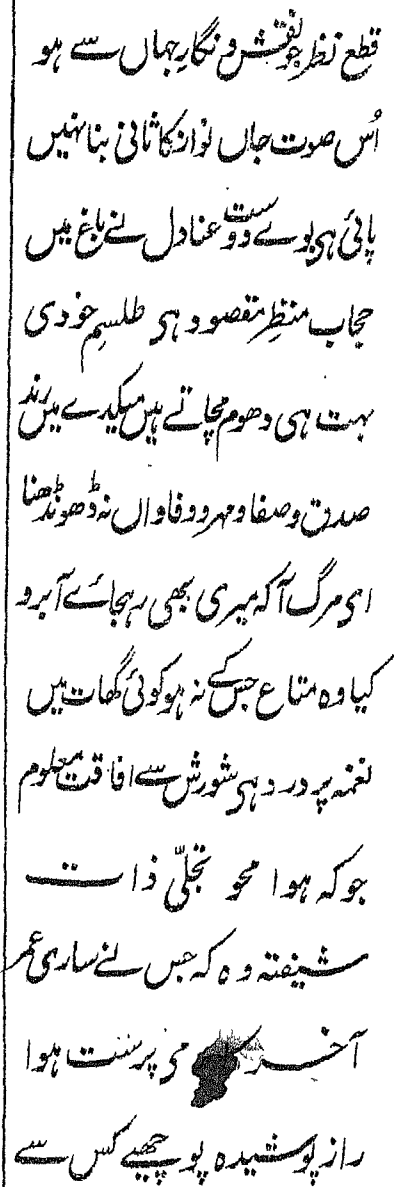 قطع نظر جو نقش و نگارِ جہاں سے ہو
اُس صوت جاں نواز کا ثانی بنا نہیں
پائی ہی بوے دوست عنادل نے باغ میں
حجاب منظرِ مقصود ہی طلسمِ خودی
بہت ہی دھوم مچاتے ہیں میکدے میں رند
صدق و صفا و مہر و وفا واں نہ ڈھونڈھنا
ای مرگ آ کہ میری بھی رہجائے آبرو
کیا وہ متاع جس کے نہ ہو کوئی گھات میں
نغمہ پر درد ہی شورش سے افاقت معلوم
جو کہ ہوا محو تجلّی ذات
شیفتہ وہ کہ جس نے ساری عمر
آخر می پرست ہوا
راز پوشیدہ پوچھیے کس سے